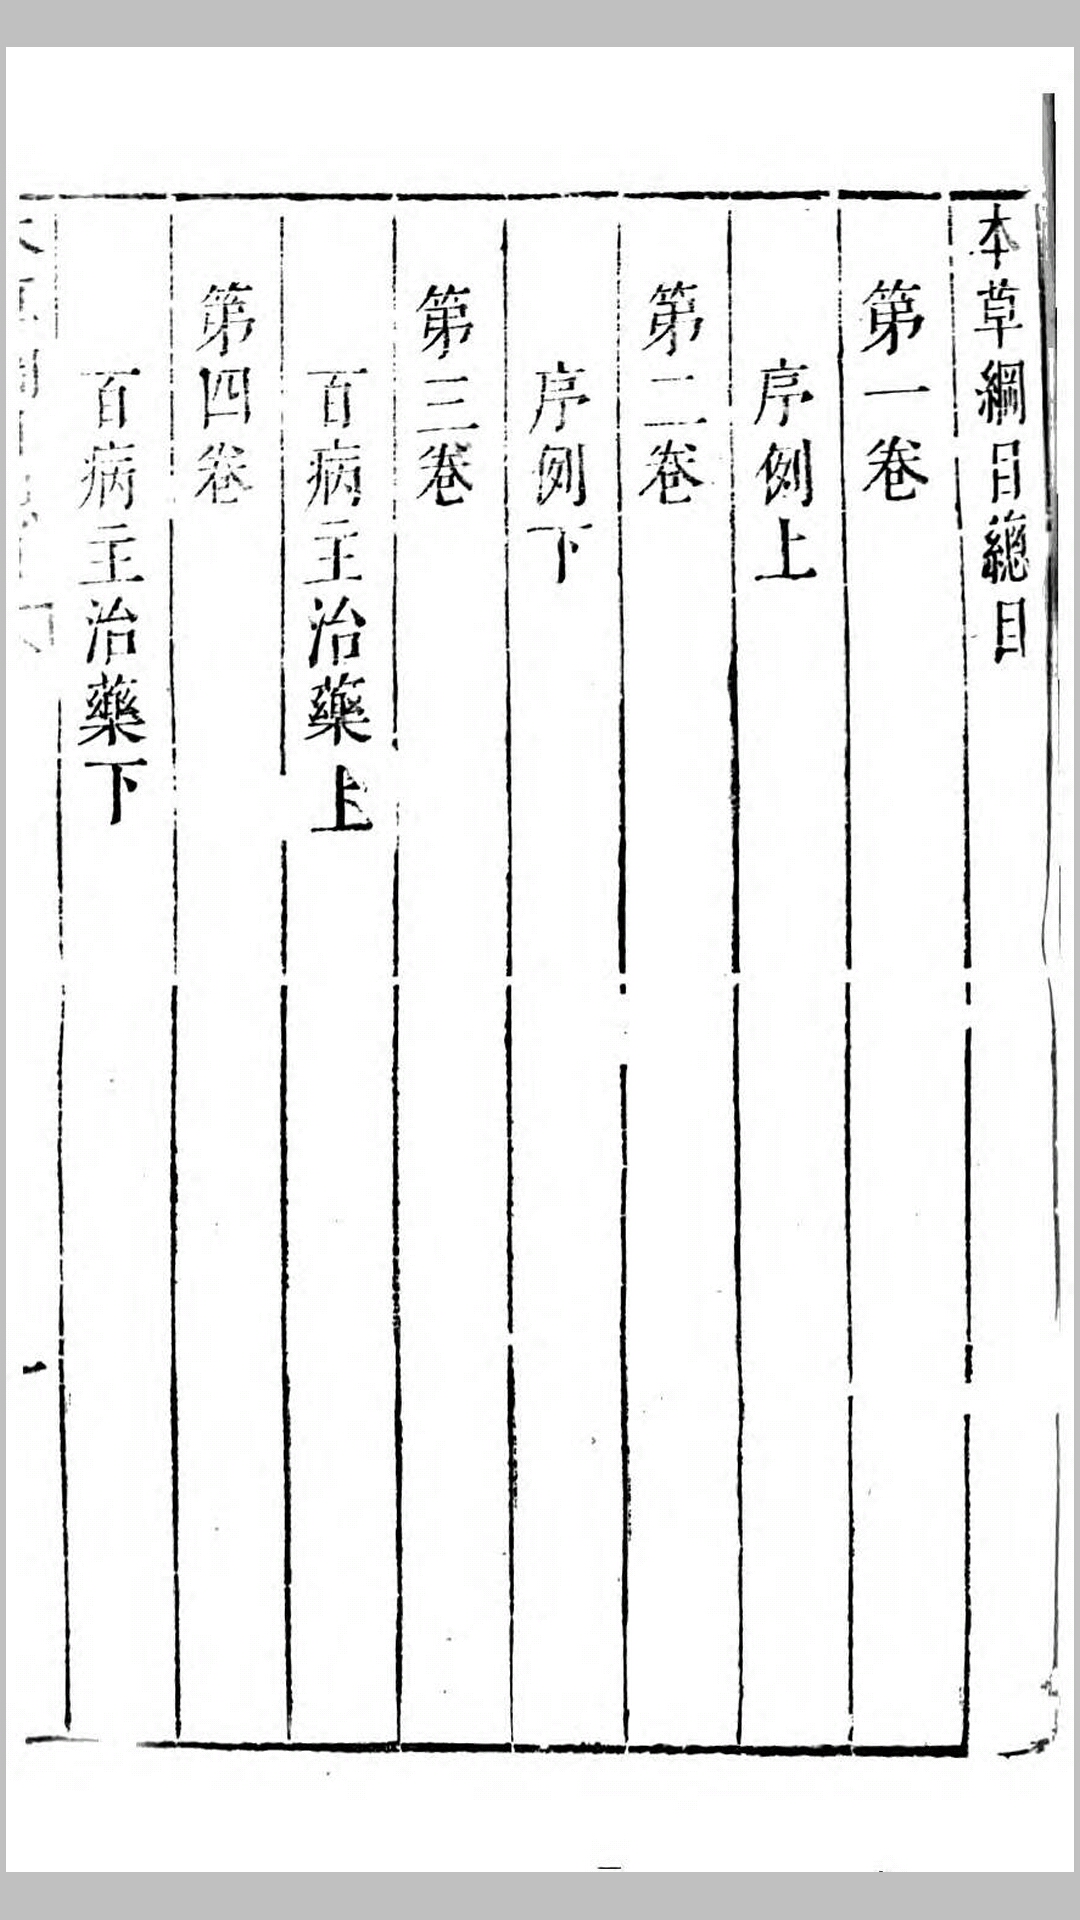 本草綱目總目
第一卷
序例上
第二卷
序例下
第三卷
百病主治藥上
第四卷
百病主治藥下